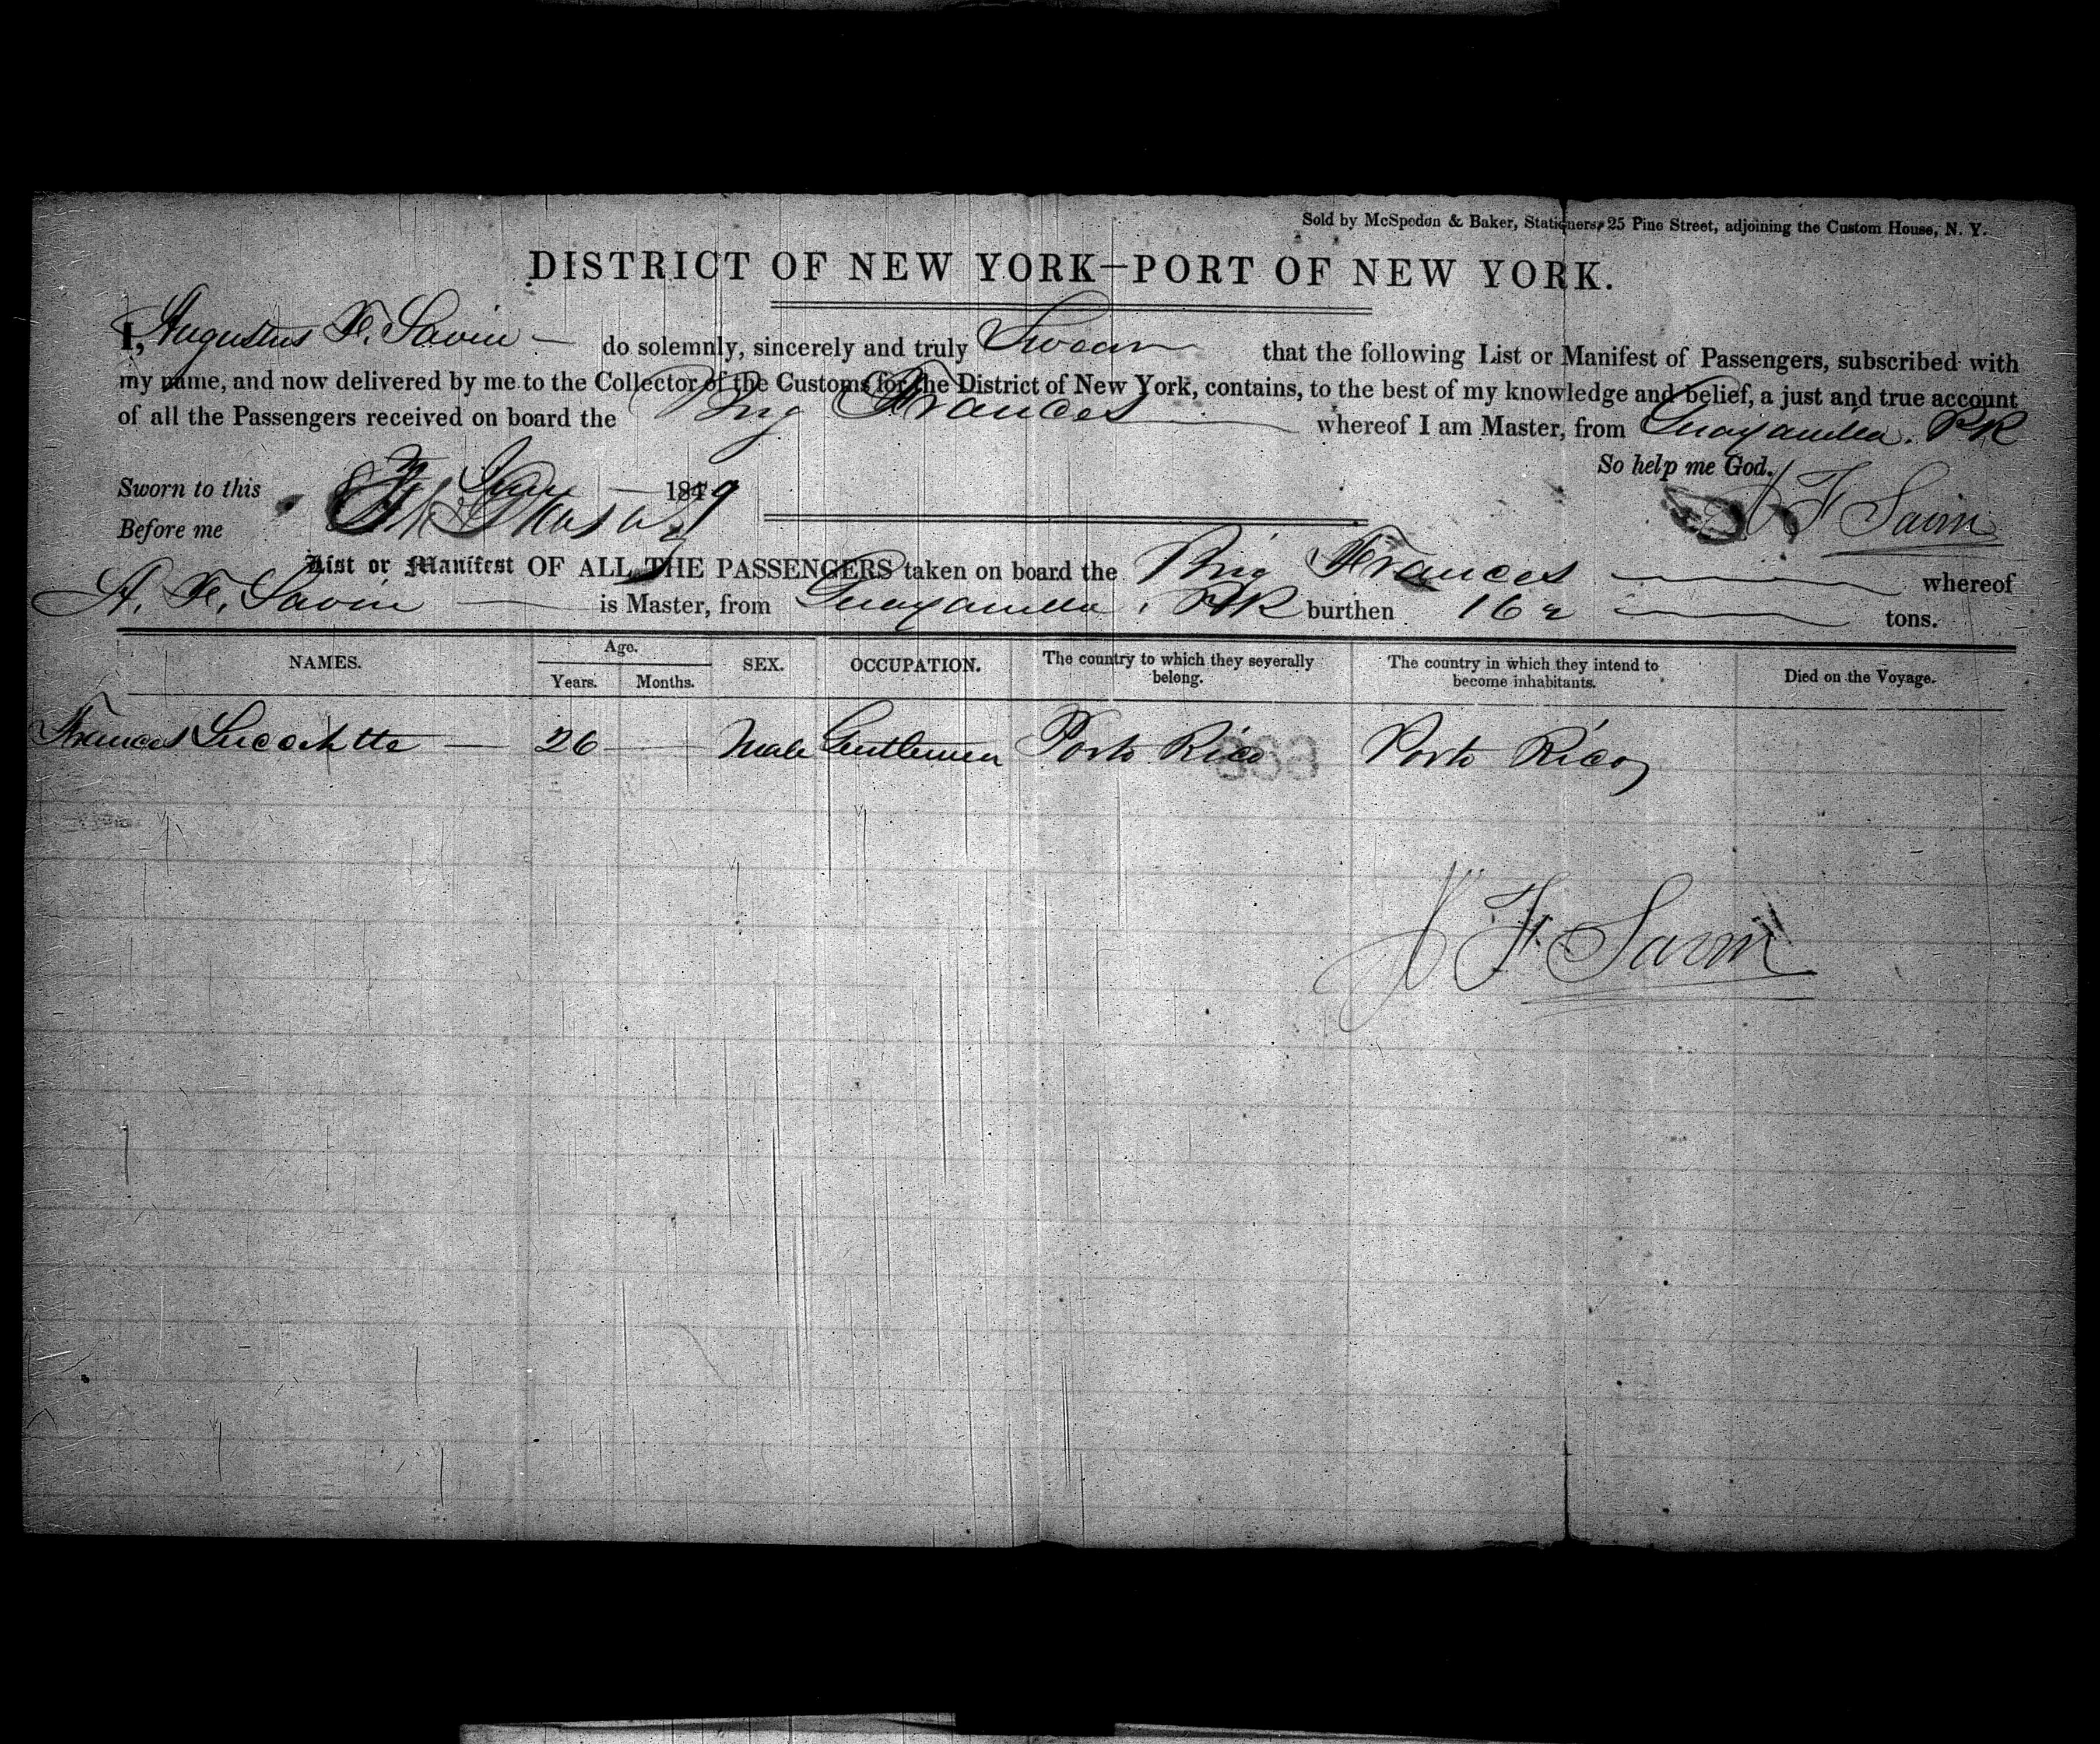 Sold by McSpedon & Baker, Stationers, 25 Pine Street, adjoining the Custom House, N. Y.
DISTRICT OF NEW YORK—PORT OF NEW YORK.
I, Augustus F. Savin — do solemnly, sincerely and truly Swear that the following List or Manifest of Passengers, subscribed with
my name, and now delivered by me to the Collector of the Customs for the District of New York, contains, to the best of my knowledge and belief, a just and true account
of all the Passengers received on board the Brig Frances whereof I am Master, from Guayanilla. P.R
So help me God.
Sworn to this Jan 1849
Before me
A F Savin
List or Manifest OF ALL THE PASSENGERS taken on board the Brig Frances whereof
A. F. Savin is Master, from Guayanilla. P.R burthen 162 tons.
NAMES. Age. Years. Months. SEX. OCCUPATION. The country to which they severally belong. The country in which they intend to become inhabitants. Died on the Voyage.
Frances 26 Male Gentleman Porto Rico Porto Rico
A F Savin